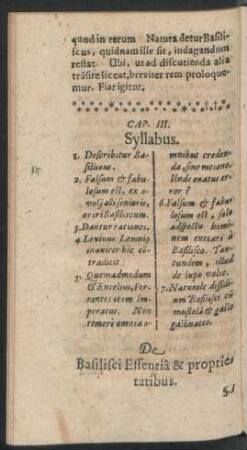 quod in rerum Natura detur Basili-
scus, quidnam ille sit, indagandum
restat. Ubi, ut ad discutienda alia
trãsire liceat, breviter rem proloque-
mur. Fiat igitur.
CAP. III.
Syllabus.
1. Describitur Ba-
siliscus.
2. Falsum & fabu-
losum est, ex o-
vo Galli senioris,
oriri Basiliscum.
3. Dantur rationes.
4. Levinus Lemnig
inaniter hic cõ-
tradicit
5. Quemadmodum
& Encelius, Fer-
rantes item Im-
peratus. Non
temerè omnia o-
mnibus creden-
da, sine ratione.
Unde enatus er-
ror?
6. Falsum & fabu-
losum est, solo
adspectu homi-
nem enecari à
Basilisco. Tan-
tundem, illud
de lupo valet.
7. Naturale dissidi-
um Basilisci cũ
mustelâ & gallo
gallinaceo.
De
Basilisci Essentiâ & proprie-
tatibus.